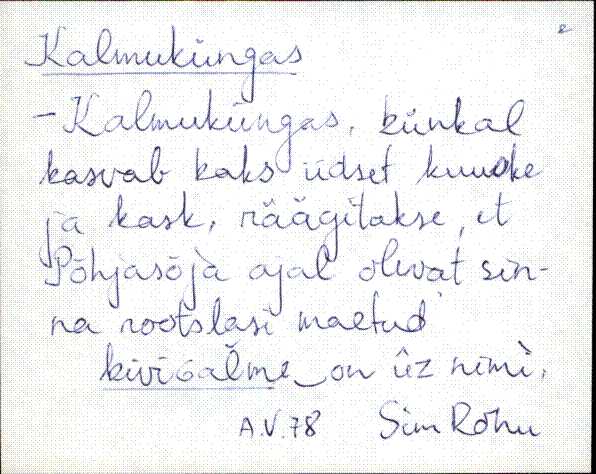 Kalmuküngas
- Kalmuküngas, künkal
kasvab kaks üdset kuuske
ja kask, räägitakse, et
Põhjasõja ajal olevat sin-
na rootslasi maetud
kivisalme on üz nimi.
A.V.78 Sim Rõhu